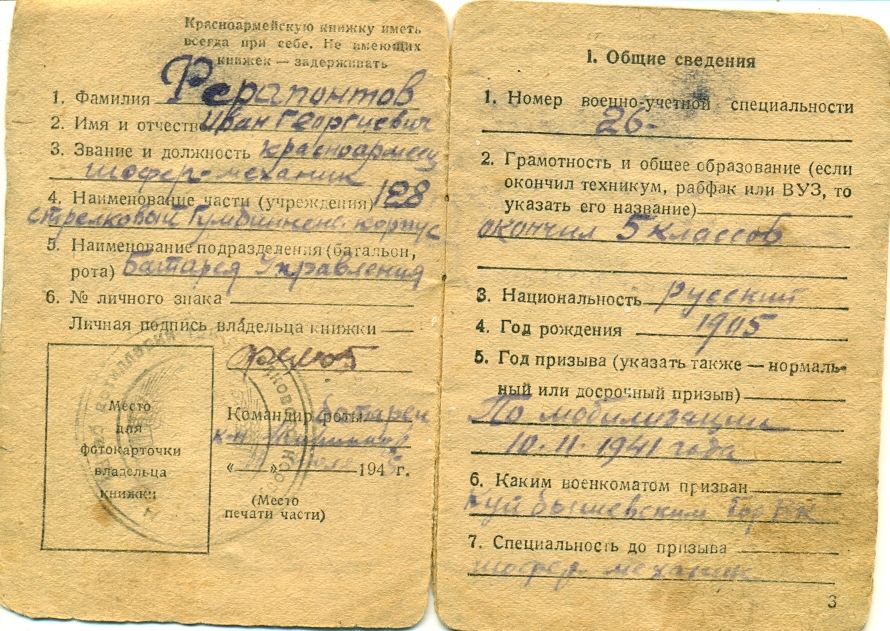 Красноармейскую книжку иметь
всегда при себе. Не имеющих
книжек — задерживать
1. Фамилия Ферапонтов
2. Имя и отчество Иван Георгиевич
3. Звание и должность красноармеец
шофер-механик
4. Наименование части (учреждения) 128
стрелковый Гумбинненс. корпус
5. Наименование подразделения (батальон,
рота) Батарея Управления
6. № личного знака
Личная подпись владельца книжки
Командир роты батареи
к-н
« » 194 г.
(Место
печати части)
Место
для
фотокарточки
владельца
книжки
1. Общие сведения
1. Номер военно-учетной специальности
26-
2. Грамотность и общее образование (если
окончил техникум, рабфак или ВУЗ, то
указать его название)
окончил 5 классов
3. Национальность русский
4. Год рождения 1905
5. Год призыва (указать также — нормаль-
ный или досрочный призыв)
По мобилизации
10.11.1941 года
6. Каким военкоматом призван
Куйбышевским Гор ВК
7. Специальность до призыва
шофер-механик
3